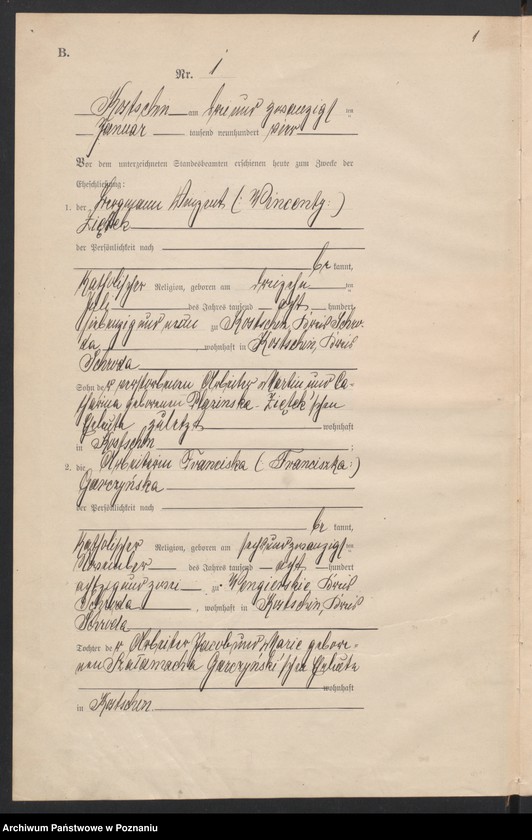 1
B.
Nr. 1
Kostschin am drei und zwanzigsten
Januar tausend neunhundert vier
Vor dem unterzeichneten Standesbeamten erschienen heute zum Zwecke der
Eheschließung:
1. der Bergmann Vinzent (: Wincenty :)
Ziętek
der Persönlichkeit nach
be kannt,
katholischer Religion, geboren am dreizehnten
Juli des Jahres tausend acht hundert
siebenzig und neun zu Kostschin, Kreis Schro-
da, wohnhaft in Kostschin, Kreis
Schroda
Sohn der verstorbenen Arbeiter Martin und Ca-
tharina geborenen Ziętek'schen
Eheleute zuletzt wohnhaft
in Kostschin ;
2. die Arbeiterin Franciska (: Franciszka :)
Garczyńska
der Persönlichkeit nach
be kannt,
katholischer Religion, geboren am sechs und zwanzigsten
November des Jahres tausend acht hundert
achtzig und zwei zu Wengierskie, Kreis
Schroda , wohnhaft in Kostschin, Kreis
Schroda
Tochter der Arbeiter Jacob und Marie gebore-
nen Szałamacha Garczyński'schen Eheleute
wohnhaft
in Kostschin
Archiwum Państwowe w Poznaniu